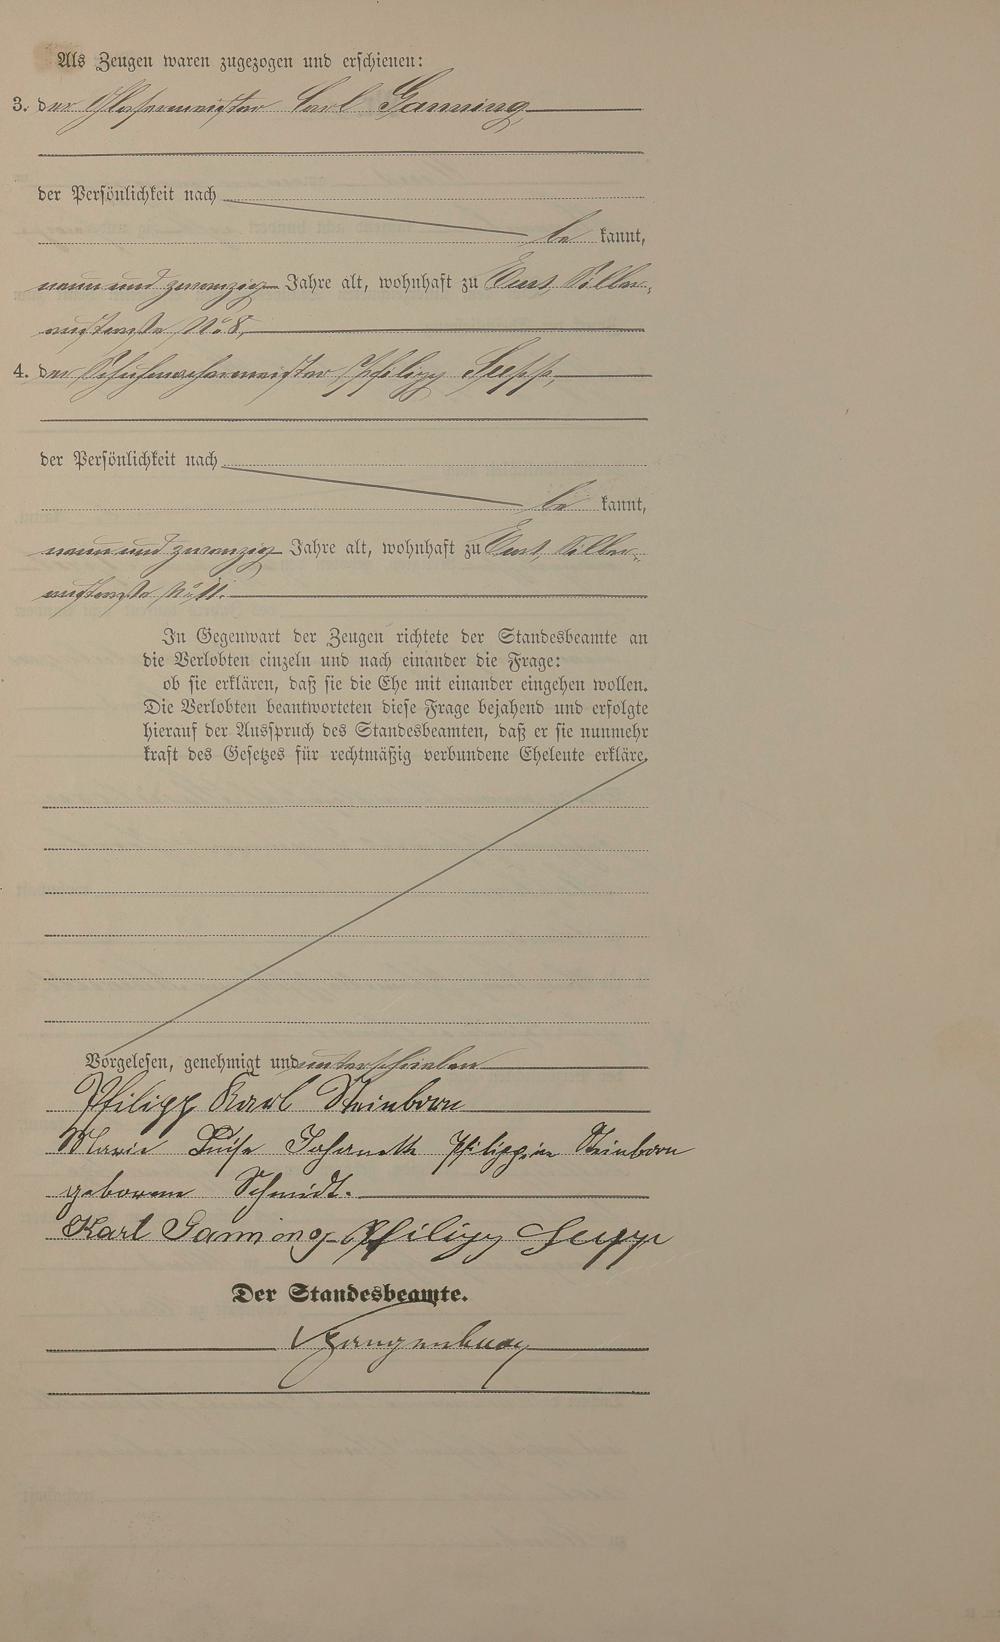 Als Zeugen waren zugezogen und erschienen:
3. der Glasermeister Carl Ganning,
der Persönlichkeit nach
be kannt,
neun und zwanzig Jahre alt, wohnhaft zu Ems, Silber-
austraße No 8,
4. der Schuhmachermeister Philipp Sepp,
der Persönlichkeit nach
be kannt,
neun und zwanzig Jahre alt, wohnhaft zu Ems, Silber-
austraße No 11.
In Gegenwart der Zeugen richtete der Standesbeamte an
die Verlobten einzeln und nach einander die Frage:
ob sie erklären, daß sie die Ehe mit einander eingehen wollen.
Die Verlobten beantworteten diese Frage bejahend und erfolgte
hierauf der Ausspruch des Standesbeamten, daß er sie nunmehr
kraft des Gesetzes für rechtmäßig verbundene Eheleute erkläre.
Vorgelesen, genehmigt und unterschrieben
Philipp Karl Steinborn
Marie Luise Johanette Philippine Steinborn
geborene Schmidt.
Karl Ganning Philipp Sepp
Der Standesbeamte.